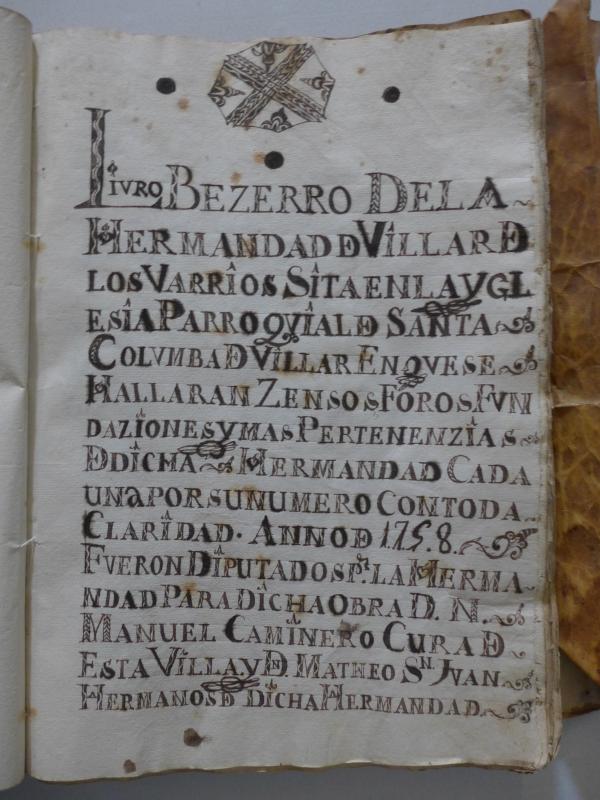 LIVRO BEZERRO DE LA
HERMANDAD D VILLAR D
LOS VARRIOS SITA EN LA YGL
ESIA PARROQVIAL D SANTA
COLVMBA D VILLAR EN QVE SE
HALLARAN ZENSOS FOROS FVN
DAZIONES Y MAS PERTENENZIAS
D DICHA HERMANDAD CADA
UNA POR SU NUMERO CON TODA
CLARIDAD. ANNO D 1758.
FVERON DIPUTADOS Pr. LA HERMA
NDAD PARA DICHA OBRA D. N.
MANUEL CAMINERO CURA D
ESTA VILLA Y DN. MATHEO SN. JVAN
HERMANOS D DICHA HERMANDAD